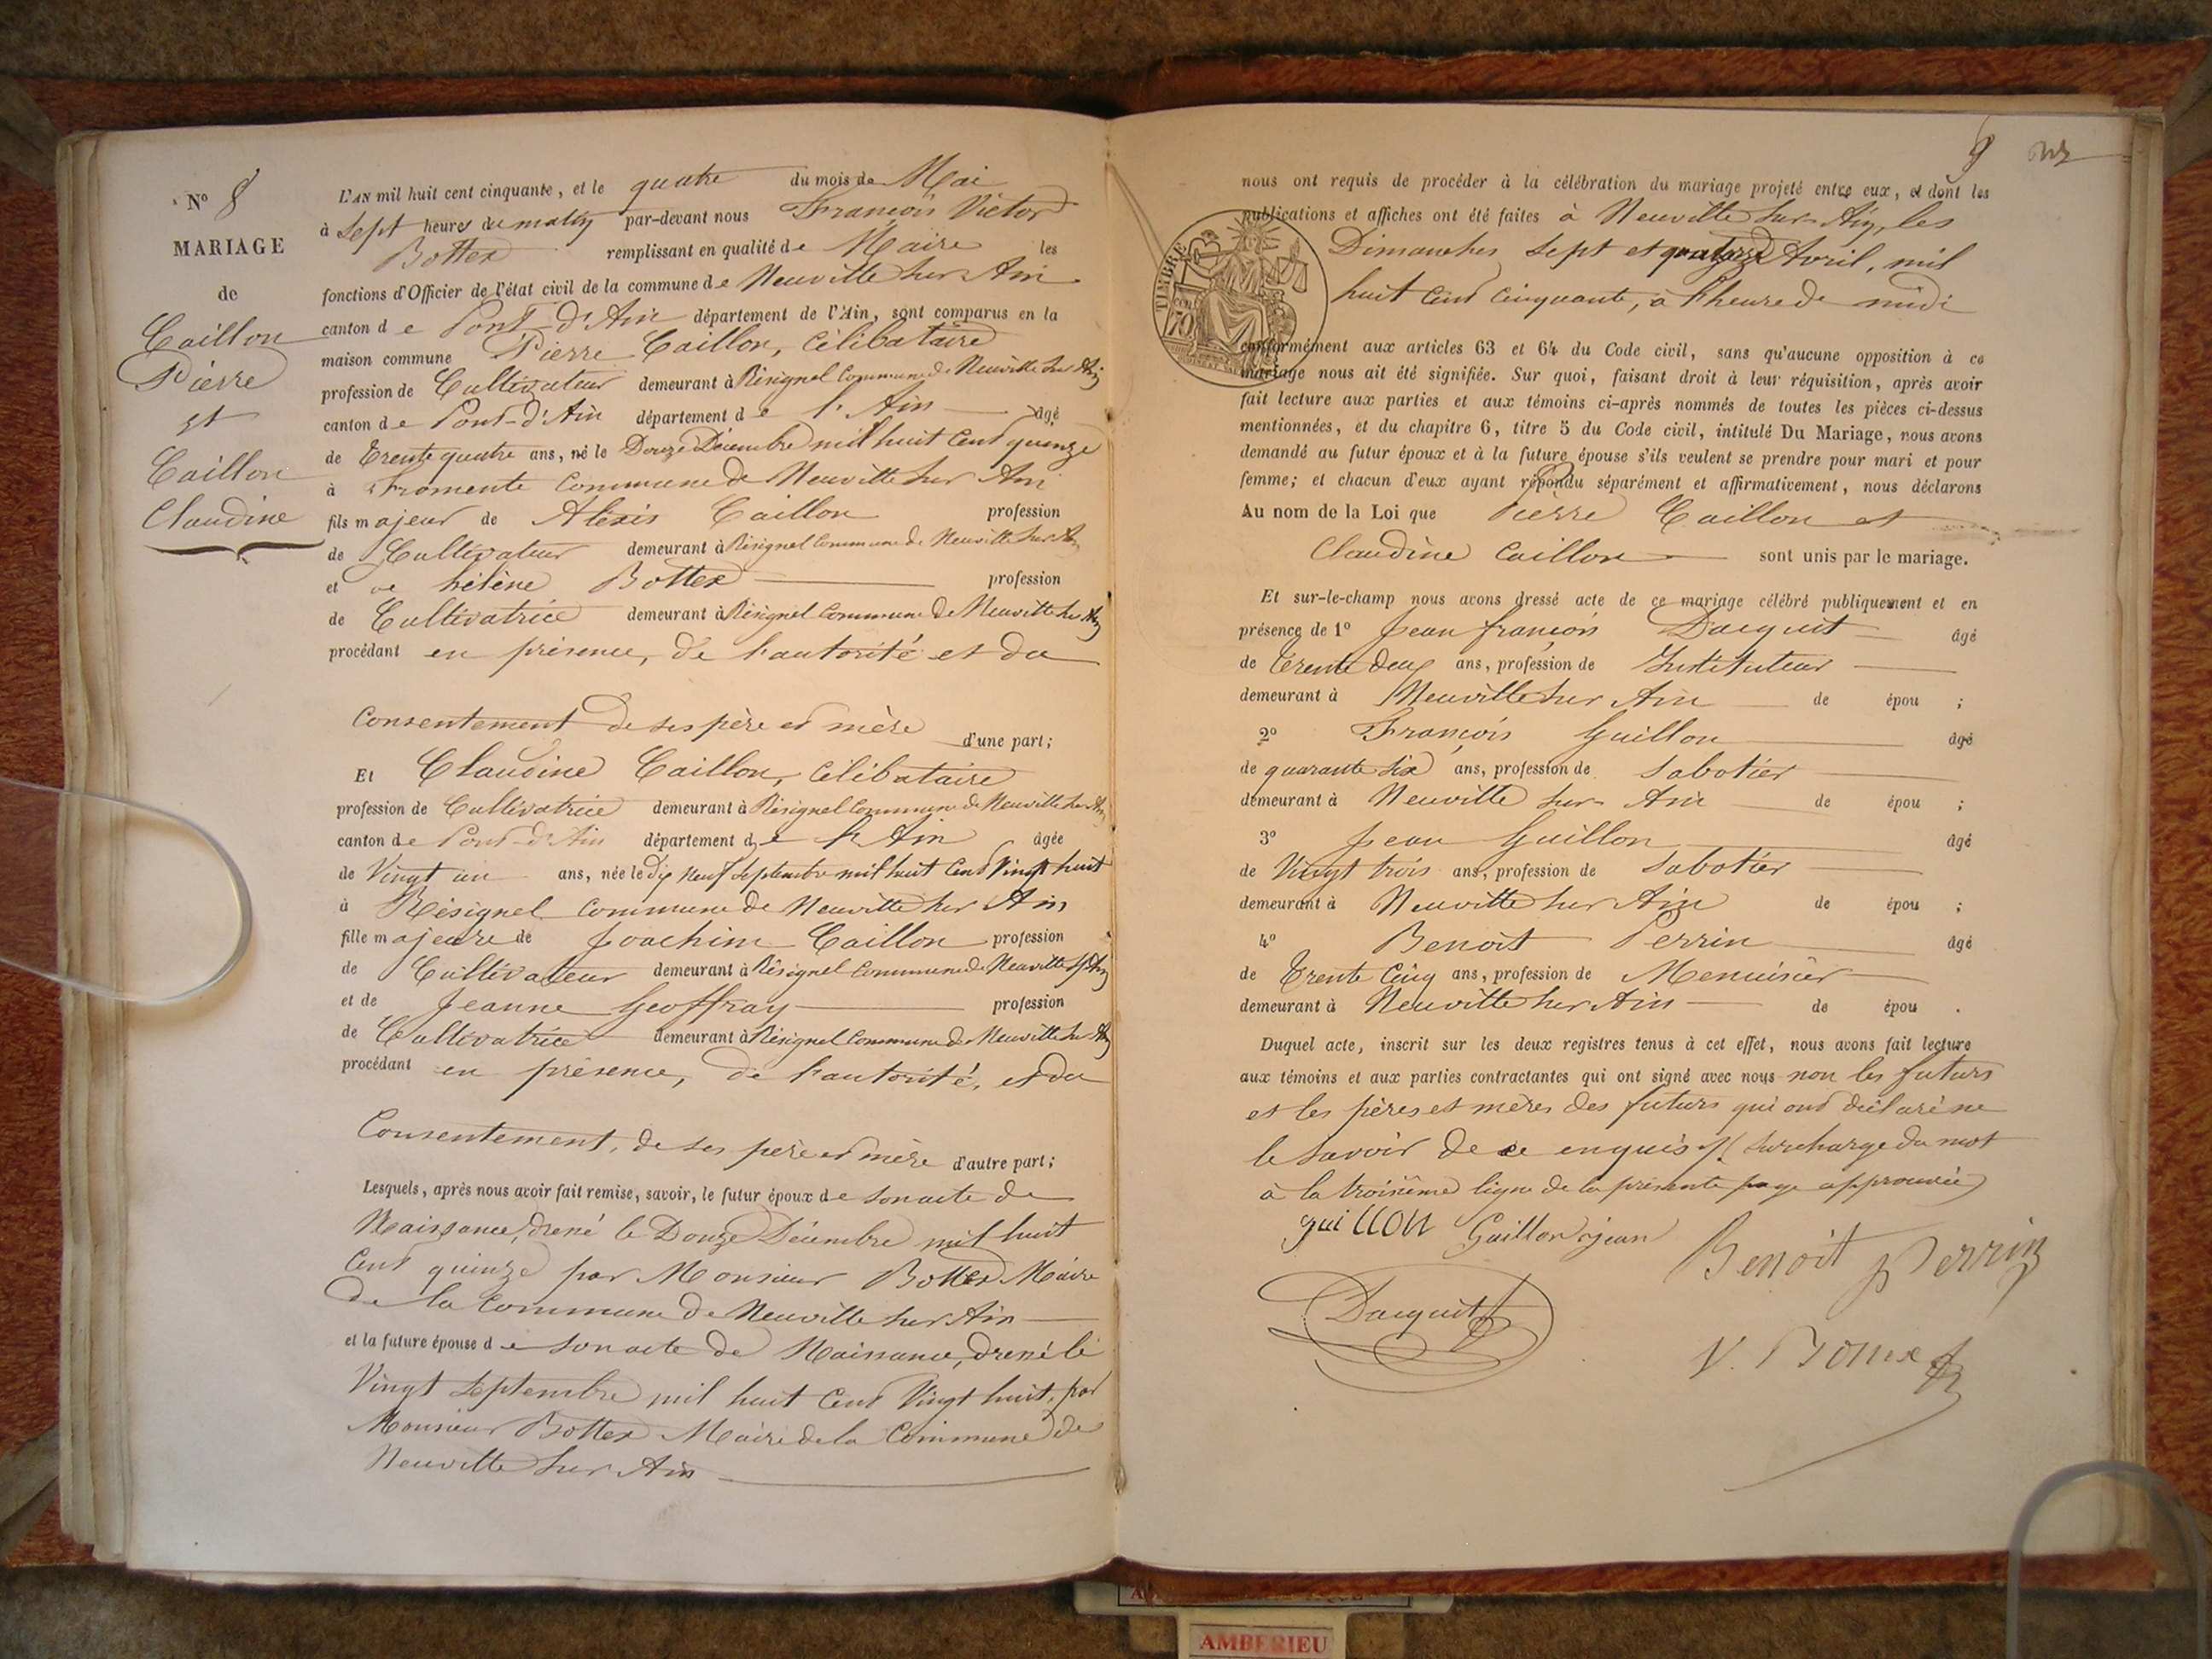 N.º 8
MARIAGE
de
Caillon
Pierre
et
Caillon
Claudine
L'AN mil huit cent cinquante, et le quatre du mois de Mai
à Sept heures du matin par-devant nous François Victor
Bottex remplissant en qualité de Maire les
fonctions d'Officier de l'état civil de la commune de Neuville sur Ain
canton de Pont-d'Ain département de l'Ain, sont comparus en la
maison commune Pierre Caillon, Célibataire
profession de Cultivateur demeurant à Résignel Commune de Neuville sur Ain
canton de Pont-d'Ain département de l'Ain âgé
de Trente quatre ans, né le Douze Décembre mil huit Cent quinze
à Fromente Commune de Neuville sur Ain
fils majeur de Alexis Caillon profession
de Cultivateur demeurant à Résignel Commune de Neuville sur Ain
et de hélène Bottex profession
de Cultivatrice demeurant à Résignel Commune de Neuville sur Ain
procédant en présence, de l'autorité et du
Consentement de ses père et mère d'une part;
Et Claudine Caillon, Célibataire
profession de Cultivatrice demeurant à Résignel Commune de Neuville sur Ain
canton de Pont-d'Ain département de l'Ain âgée
de Vingt un ans, née le Dix Neuf Septembre mil huit Cent Vingt huit
à Résignel Commune de Neuville sur Ain
fille majeure de Joachim Caillon profession
de Cultivateur demeurant à Résignel Commune de Neuville s/ Ain
et de Jeanne Geoffray profession
de Cultivatrice demeurant à Résignel Commune de Neuville sur Ain
procédant en présence, de l'autorité, et du
Consentement, de ses père et mère d'autre part;
Lesquels, après nous avoir fait remise, savoir, le futur époux de son acte de
Naissance, dressé le Douze Décembre mil huit
Cent quinze par Monsieur Bottex Maire
de la Commune de Neuville sur Ain
et la future épouse de son acte de Naissance, dressé le
Vingt Septembre mil huit Cent Vingt huit, par
Monsieur Bottex Maire de la Commune de
Neuville sur Ain
9
nous ont requis de procéder à la célébration du mariage projeté entre eux, et dont les
publications et affiches ont été faites à Neuville sur Ain, les
Dimanches Sept et quatorze Avril, mil
huit Cent Cinquante, à l'heure de midi
TIMBRE
70
conformément aux articles 63 et 64 du Code civil, sans qu'aucune opposition à ce
mariage nous ait été signifiée. Sur quoi, faisant droit à leur réquisition, après avoir
fait lecture aux parties et aux témoins ci-après nommés de toutes les pièces ci-dessus
mentionnées, et du chapitre 6, titre 5 du Code civil, intitulé Du Mariage, nous avons
demandé au futur époux et à la future épouse s'ils veulent se prendre pour mari et pour
femme; et chacun d'eux ayant répondu séparément et affirmativement, nous déclarons
Au nom de la Loi que Pierre Caillon et
Claudine Caillon sont unis par le mariage.
Et sur-le-champ nous avons dressé acte de ce mariage célébré publiquement et en
présence de 1º Jean françois Dacquit âgé
de Trente deux ans, profession de Instituteur
demeurant à Neuville sur Ain de épou ;
2º François Guillon âgé
de quarante six ans, profession de Sabotier
demeurant à Neuville sur Ain de épou ;
3º Jean Guillon âgé
de Vingt trois ans, profession de Sabotier
demeurant à Neuville sur Ain de épou ;
4º Benoit Perrin âgé
de Trente Cinq ans, profession de Menuisier
demeurant à Neuville sur Ain de épou .
Duquel acte, inscrit sur les deux registres tenus à cet effet, nous avons fait lecture
aux témoins et aux parties contractantes qui ont signé avec nous non les futurs
et les pères et mères des futurs qui ont déclaré ne
le savoir de ce enquis ./. (Surcharge du mot
à la troisième ligne de la présente page approuvée)
guiLLON Guillon jean
Benoit Perrin
Dacquit
V. Bottex
AMBERIEU